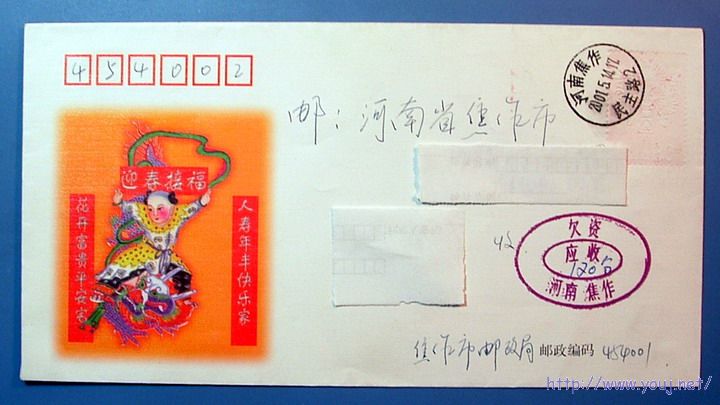 454002
邮:河南省焦作市
河南焦作
2001.5.14.17
民主路2
迎春接福
花开富贵平安家
人寿年丰快乐家
收
欠资
应收
120分
河南焦作
焦作市邮政局 邮政编码 454001
http://www.youj.net/